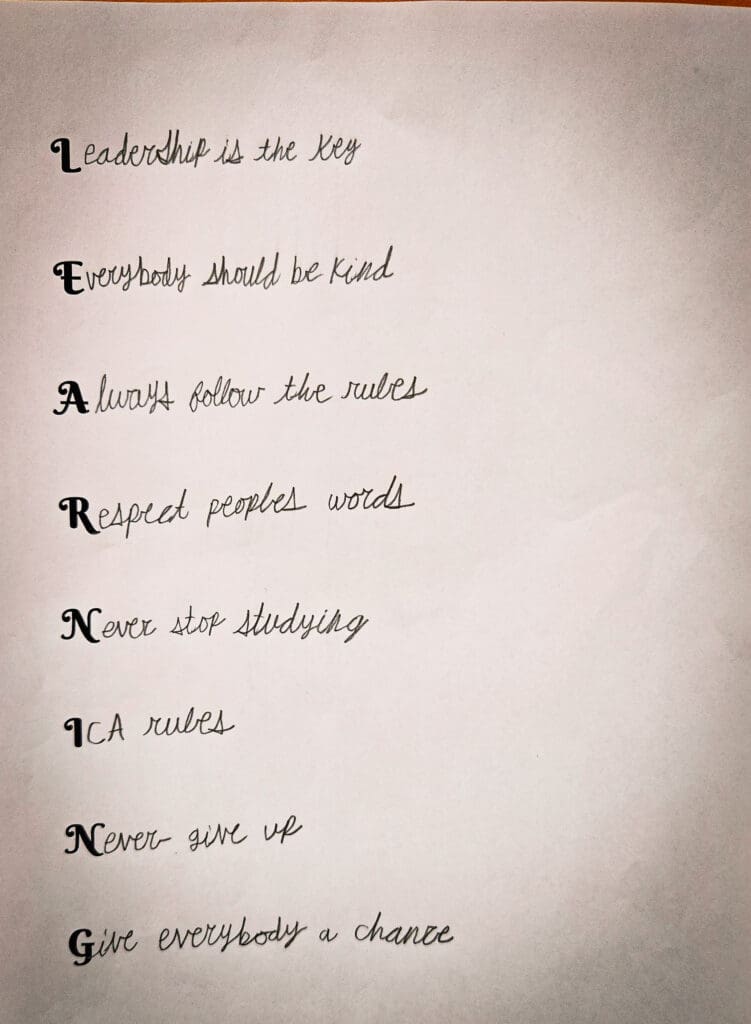 Leadership is the key
Everybody should be kind
Always follow the rules
Respect peoples words
Never stop studying
ICA rules
Never give up
Give everybody a chance